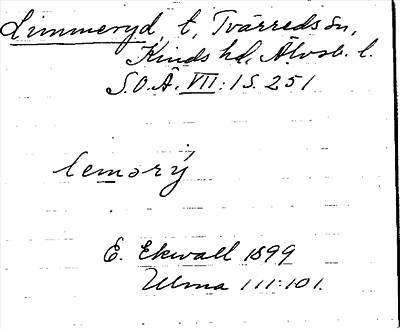 Limmeryd, t, Tvärreds sn,
Kinds hd, Älvsb. l.
S.O.Ä. VII:1 S. 251
lemərý
E. Ekwall 1899
Ulma 111:101.